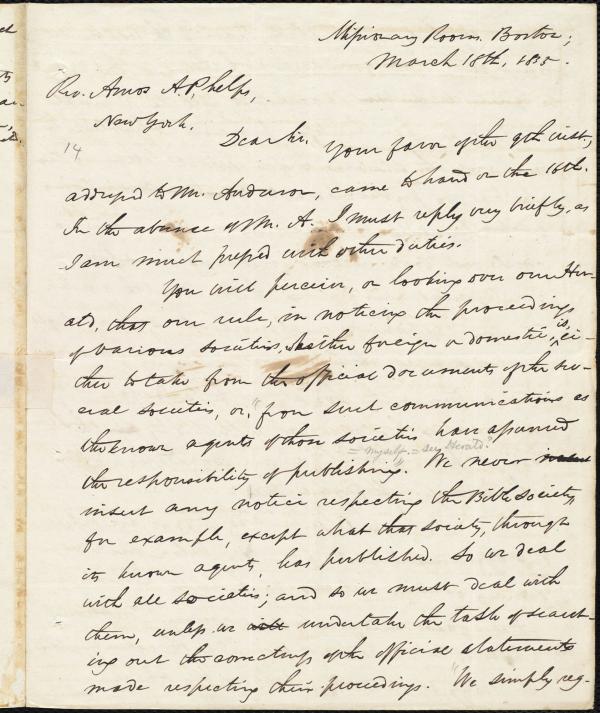 Missionary Rooms. Boston;
March 18th, 1835.
Rev. Amos A. Phelps,
New York.
14
Dear Sir. Your favor of the 9th inst.,
addressed to Mr. Anderson, came to hand on the 16th.
In the absence of Mr. A. I must reply very briefly, as
I am much pressed with other duties.
You will perceive, on looking over our Her-
ald, that our rule, in noticing the proceedings
of various societies, whether foreign or domestic, is, ei-
ther to take from the official documents of the sev-
eral societies, or, "from such communications as
the known agents of those societies have assumed
= myself. = see Herald."
the responsibility of publishing." We never
insert any notice respecting the Bible Society,
for example, except what that society, through
its known agents, has published. So we deal
with all societies; and so we must deal with
them, unless we will undertake the task of search-
ing out the correctness of the official statements
made respecting their proceedings. "We simply reg-